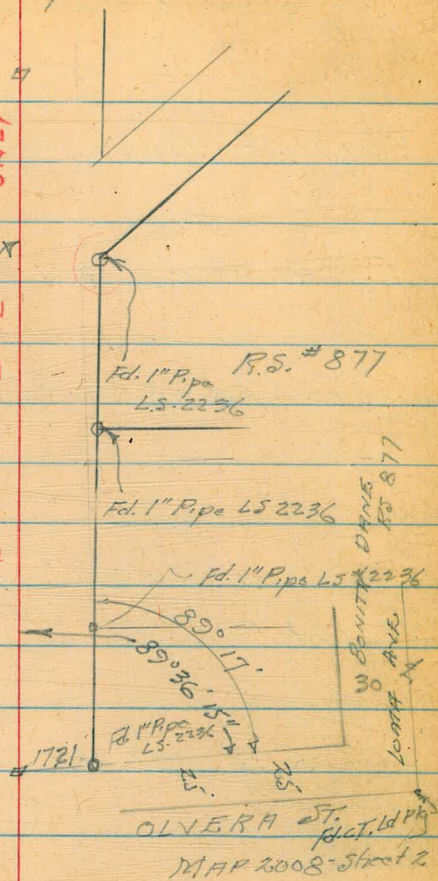 Fd. 1" Pipe
L.S. 2236
R.S. #877
Fd. 1" Pipe LS 2236
Fd. 1" Pipe LS 2236
89° 17'
89° 36' 15"
Fd. 1" Pipe
LS. 2236
1721
25'
25'
30
BONITA
RS 877
LOMA AVE.
OLVERA ST.
Fd. C.T. Ld Plg
MAP 2008-Sheet 2